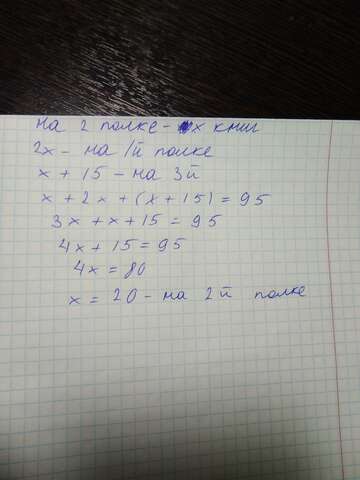 на 2 полке - x книг
2x - на 1й полке
x + 15 - на 3й
x + 2x + (x + 15) = 95
3x + x + 15 = 95
4x + 15 = 95
4x = 80
x = 20 - на 2й полке